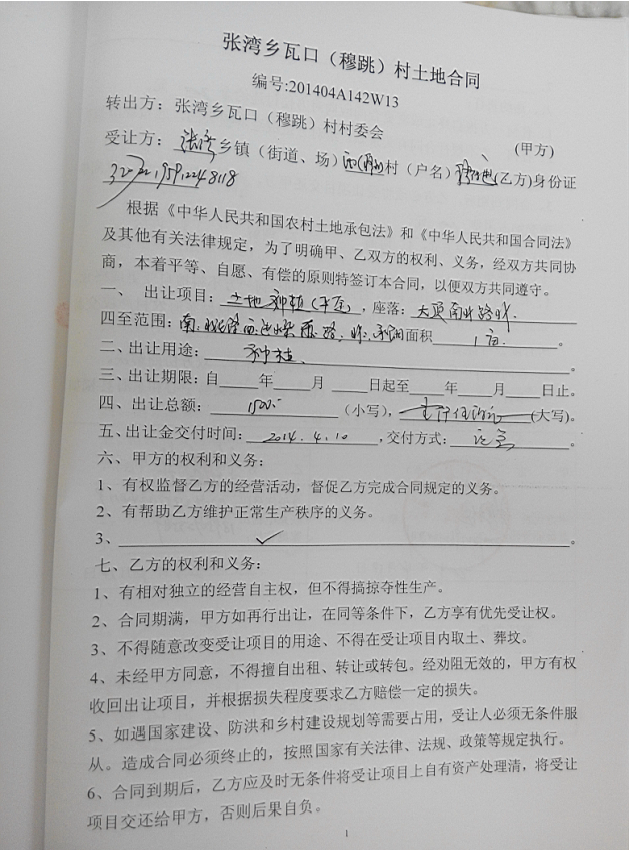 张湾乡瓦口（穆跳）村土地合同
编号:201404A142W13
转出方：张湾乡瓦口（穆跳）村村委会
(甲方)
受让方：张湾乡镇（街道、场） 村（户名） (乙方)身份证
根据《中华人民共和国农村土地承包法》和《中华人民共和国合同法》
及其他有关法律规定，为了明确甲、乙双方的权利、义务，经双方共同协
商，本着平等、自愿、有偿的原则特签订本合同，以便双方共同遵守。
一、 出让项目：土地种植 ，座落：
四至范围：南 面积 1亩 。
二、出让用途： 种植 。
三、出让期限：自 年 月 日起至 年 月 日止。
四、出让总额： （小写）， (大写)。
五、出让金交付时间： 2014.4.10 ,交付方式： 。
六、甲方的权利和义务：
1、有权监督乙方的经营活动，督促乙方完成合同规定的义务。
2、有帮助乙方维护正常生产秩序的义务。
3、 。
七、乙方的权利和义务：
1、有相对独立的经营自主权，但不得搞掠夺性生产。
2、合同期满，甲方如再行出让，在同等条件下，乙方享有优先受让权。
3、不得随意改变受让项目的用途、不得在受让项目内取土、葬坟。
4、未经甲方同意，不得擅自出租、转让或转包。经劝阻无效的，甲方有权
收回出让项目，并根据损失程度要求乙方赔偿一定的损失。
5、如遇国家建设、防洪和乡村建设规划等需要占用，受让人必须无条件服
从。造成合同必须终止的，按照国家有关法律、法规、政策等规定执行。
6、合同到期后，乙方应及时无条件将受让项目上自有资产处理清，将受让
项目交还给甲方，否则后果自负。
1